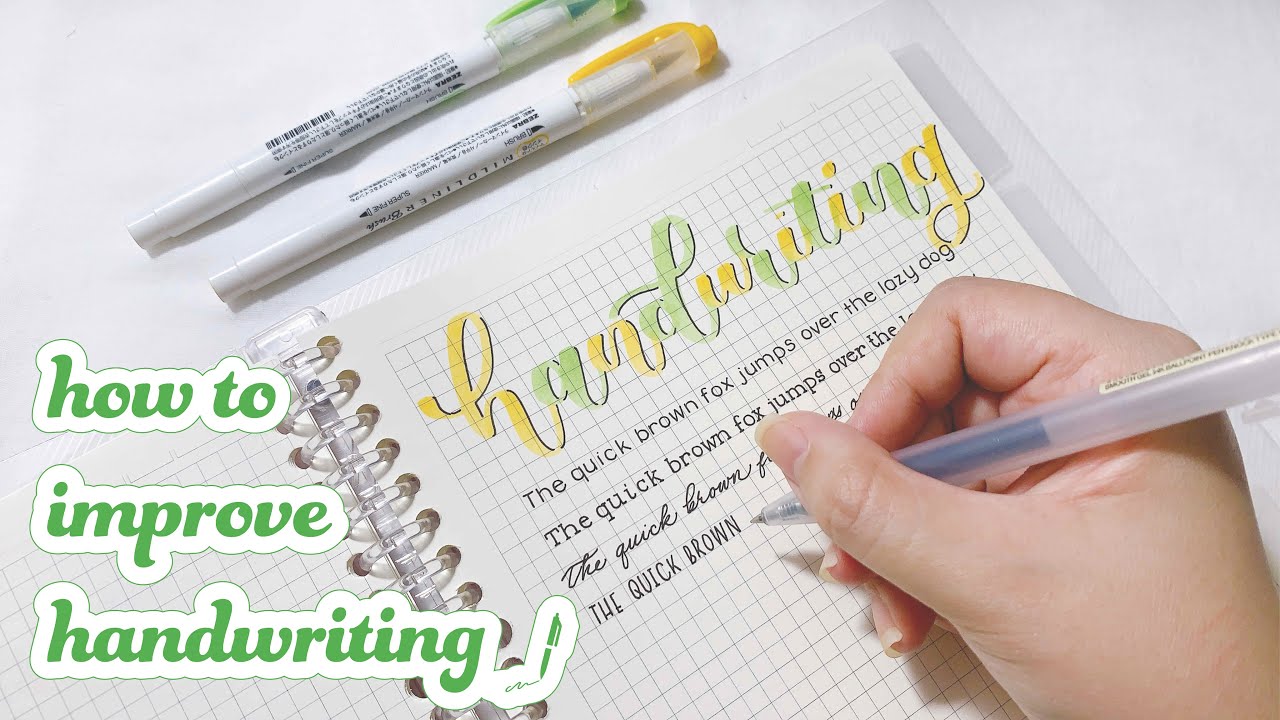 how to
improve
handwriting
handwriting
The quick brown fox jumps over the lazy dog
The quick brown fox jumps over the
the quick brown
THE QUICK BROWN
ZEBRA
BRUSH
MARKER
SUPER FINE
ZEBRA
BRUSH
MARKER
SUPER FINE
MILDLINER Brush
SMOOTH GEL INK BALLPOINT PEN KNOCK TYPE